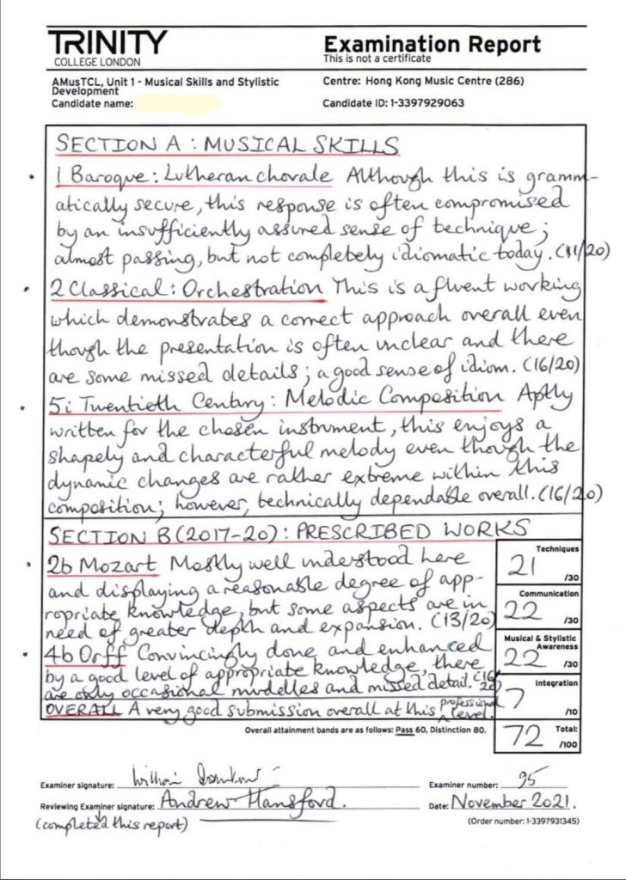 TRINITY
COLLEGE LONDON
Examination Report
This is not a certificate
AMusTCL, Unit 1 - Musical Skills and Stylistic
Development
Candidate name:
Centre: Hong Kong Music Centre (286)
Candidate ID: 1-3397929063
SECTION A : MUSICAL SKILLS
1 Baroque: Lutheran chorale Although this is gramm-
atically secure, this response is often compromised
by an insufficiently assured sense of technique;
almost passing, but not completely idiomatic today. (11/20)
2 Classical: Orchestration This is a fluent working
which demonstrates a correct approach overall even
though the presentation is often unclear and there
are some missed details; a good sense of idiom. (16/20)
5i Twentieth Century: Melodic Composition Aptly
written for the chosen instrument, this enjoys a
shapely and characterful melody even though the
dynamic changes are rather extreme within this
composition; however, technically dependable overall. (16/20)
SECTION B (2017-20): PRESCRIBED WORKS
2b Mozart Mostly well understood here
and displaying a reasonable degree of app-
ropriate knowledge, but some aspects are in
need of greater depth and expansion. (13/20)
4b Orff Convincingly done and enhanced
by a good level of appropriate knowledge, there
are only occasional muddles and missed detail. (16/20)
OVERALL A very good submission overall at this professional level.
Techniques
21 /30
Communication
22 /30
Musical & Stylistic
Awareness
22 /30
Integration
7 /10
Total:
72 /100
Overall attainment bands are as follows: Pass 60, Distinction 80.
Examiner signature:
Examiner number: 95
Reviewing Examiner signature: Andrew Hansford.
Date: November 2021.
(completed this report)
(Order number: 1-3397931345)